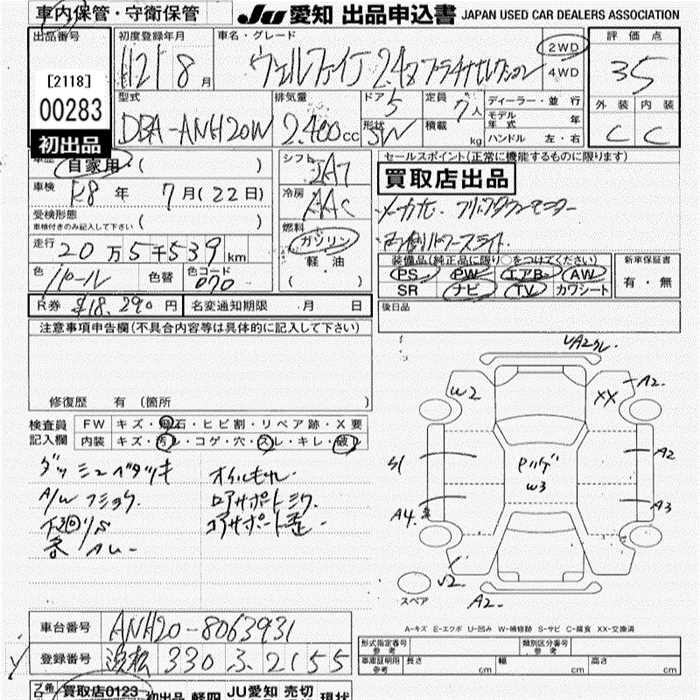 車内保管・守衛保管 JU 愛知 出品申込書 JAPAN USED CAR DEALERS ASSOCIATION
出品番号 初度登録年月 車名・グレード 評価点
[2118] H21 8月 ヴェルファイア 2.4Z プラチナセレクション 2WD 4WD 3.5
00283 型式 排気量 ドア 5 定員 7人 ディーラー・並行 外装 内装
初出品 DBA-ANH20W 2.400cc 形状 SW 積載 kg モデル年式 年 ハンドル 左・右 C C
車歴 自家用・( ) シフト セールスポイント(正常に機能するものに限ります)
車検 R8年 7月(22日) 買取店出品
受検形態 ( ) 冷房 AAC
車検付きのみ記入して下さい 燃料
走行 20万5千539km ガソリン 軽・油 ( )
色 パール 色替 色コード 070 装備品(純正品に限り○をつけてください) 新車保証書
PS PW エアB AW
SR ナビ TV カワシート 有・無
R券 ¥18,290円 名変通知期限 月 日 後日品
注意事項申告欄(不具合内容等は具体的に記入して下さい)
修復歴 有(箇所
検査員 FW キズ・飛石・ヒビ割・リペア跡・X要
記入欄 内装 キズ・汚レ・コゲ・穴・スレ・キレ・破
ダッシュベタツキ オイルモレ
下回りサビ
W2 XX A2
S1 A2
W3
A4 A3
A2
スペア
A-キズ E-エクボ U-凹み W-補修跡 S-サビ C-腐食 XX-交換済
車台番号 ANH20-8063931
登録番号 浜松 330 ふ 2155
形式指定番号 参考 類別区分番号 参考
車庫証明用 参考 長さ cm 幅 cm 高さ cm
買取店0123 初出品 軽四 JU愛知 売切 現状